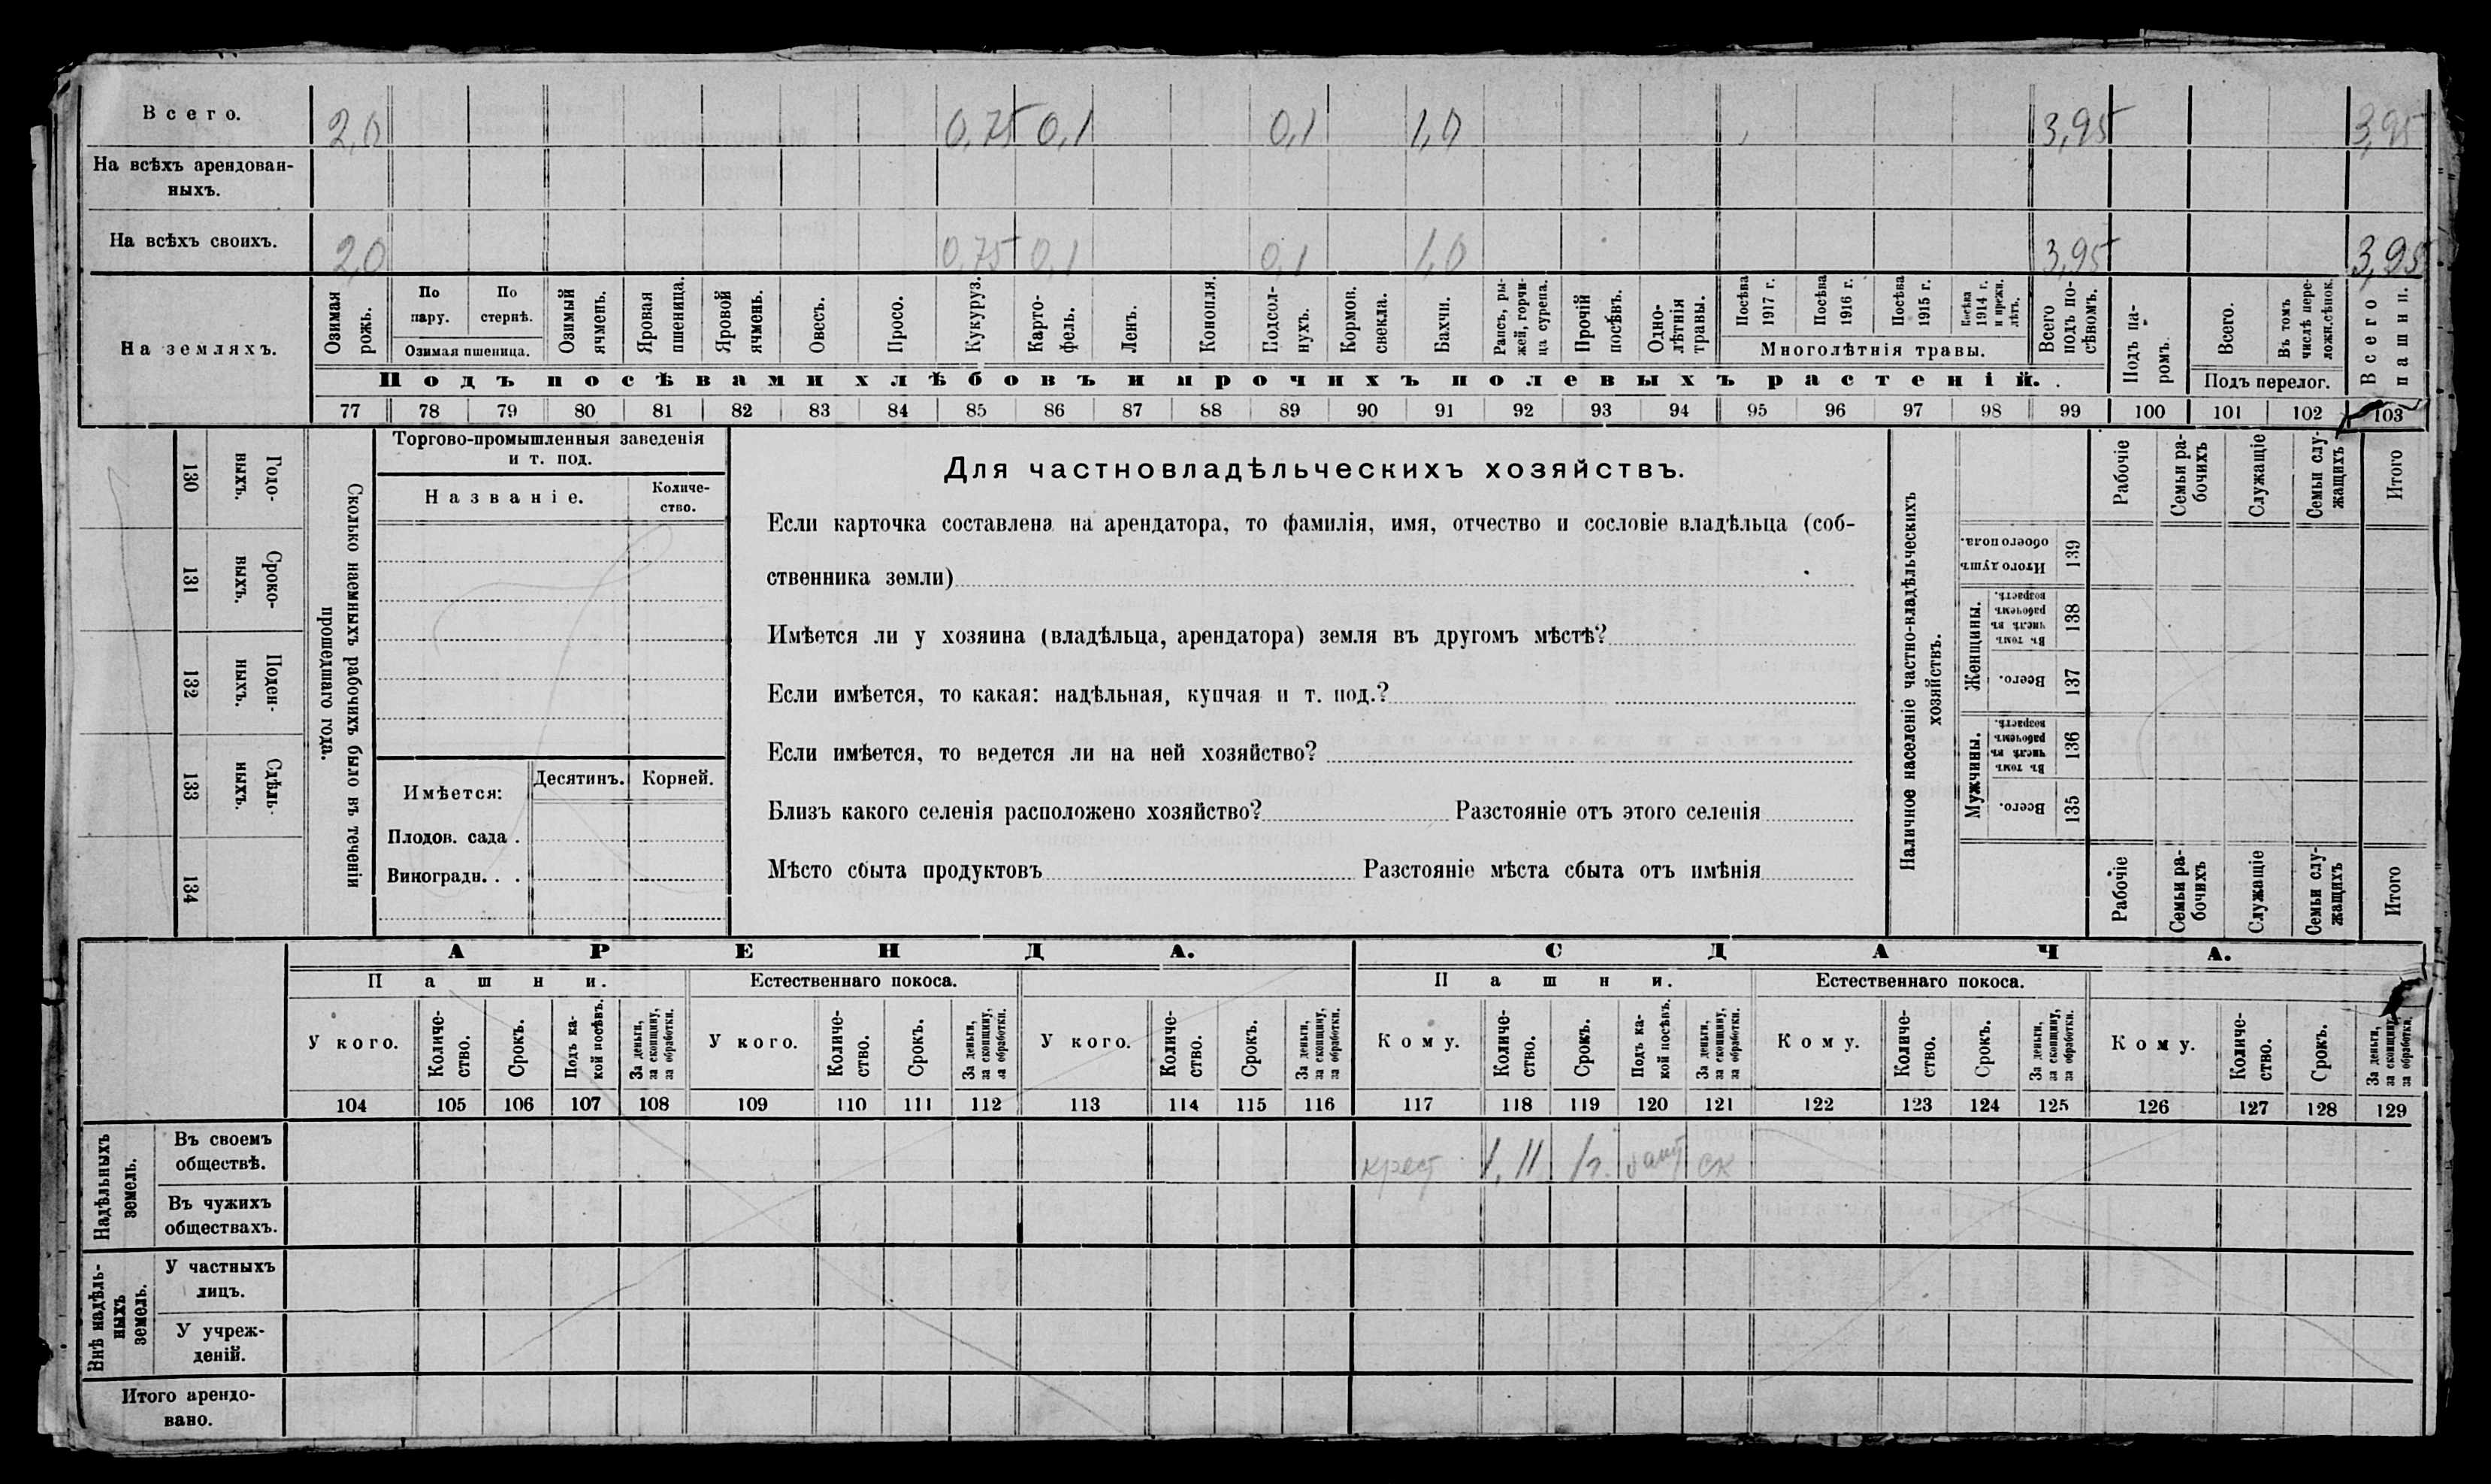 Всего. 2,0 0,75 0,1 0,1 1,0 3,95 3,95
На всѣхъ арендован-
ныхъ.
На всѣхъ своихъ. 2,0 0,75 0,1 0,1 1,0 3,95 3,95
На земляхъ.
Озимая рожь.
По пару.
По стернѣ.
Озимая пшеница.
Озимый ячмень.
Яровая пшеница.
Яровой ячмень.
Овесъ.
Просо.
Кукуруз.
Карто-
фель.
Ленъ.
Конопля.
Подсол-
нухъ.
Кормов. свекла.
Бахчи.
Рапсъ, ры-
жей, горчи-
ца сурепа.
Прочій посѣвъ.
Одно-
лѣтнія травы.
Посѣва 1917 г.
Посѣва 1916 г.
Посѣва 1915 г.
Посѣва 1914 г. и прежн. лѣтъ.
Многолѣтнія травы.
Всего подъ по-
сѣвомъ.
Подъ па-
ромъ.
Всего.
Въ томъ числѣ пере-
ложн.сѣнок.
Подъ перелог.
Всего пашни.
Подъ посѣвами хлѣбовъ и прочихъ полевыхъ растеній.
77 78 79 80 81 82 83 84 85 86 87 88 89 90 91 92 93 94 95 96 97 98 99 100 101 102 103
130 Годо-
выхъ.
131 Сроко-
выхъ.
132 Поден-
ныхъ.
133 Сдѣль-
ныхъ.
134
Сколько наемныхъ рабочихъ было въ теченіи
прошедшаго года.
Торгово-промышленныя заведенія
и т. под.
Названіе.
Количе-
ство.
Имѣется:
Десятинъ. Корней.
Плодов. сада .
Виноградн. . .
Для частновладѣльческихъ хозяйствъ.
Если карточка составлена на арендатора, то фамилія, имя, отчество и сословіе владѣльца (соб-
ственника земли)
Имѣется ли у хозяина (владѣльца, арендатора) земля въ другомъ мѣстѣ?
Если имѣется, то какая: надѣльная, купчая и т. под.?
Если имѣется, то ведется ли на ней хозяйство?
Близъ какого селенія расположено хозяйство? Разстояніе отъ этого селенія
Мѣсто сбыта продуктовъ Разстояніе мѣста сбыта отъ имѣнія
Наличное населеніе частно-владѣльческихъ
хозяйствъ.
Рабочіе
Семьи ра-
бочихъ
Служащіе
Семьи слу-
жащихъ
Итого
Итого душъ
обоего пола.
139
Женщины.
Въ томъ числѣ въ рабочемъ возрастѣ.
138
Всего.
137
Мужчины.
Въ томъ числѣ въ рабочемъ возрастѣ.
136
Всего.
135
Рабочіе
Семьи ра-
бочихъ
Служащіе
Семьи слу-
жащихъ
Итого
АРЕНДА. СДАЧА.
Пашни. Естественнаго покоса. Пашни. Естественнаго покоса.
У кого.
Количе-
ство.
Срокъ.
Подъ ка-
кой посѣвъ.
За деньги,
за скопщину,
за обработки.
У кого.
Количе-
ство.
Срокъ.
За деньги,
за скопщину,
за обработки.
У кого.
Количе-
ство.
Срокъ.
За деньги,
за скопщину,
за обработки.
Кому.
Количе-
ство.
Срокъ.
Подъ ка-
кой посѣвъ.
За деньги,
за скопщину,
за обработки.
Кому.
Количе-
ство.
Срокъ.
За деньги,
за скопщину,
за обработки.
Кому.
Количе-
ство.
Срокъ.
За деньги,
за скопщину,
за обработки.
104 105 106 107 108 109 110 111 112 113 114 115 116 117 118 119 120 121 122 123 124 125 126 127 128 129
Надѣльныхъ
земель.
Въ своемъ
обществѣ.
крест 1,11 1г. ск
Въ чужихъ
обществахъ.
Внѣ надѣль-
ныхъ
земель.
У частныхъ
лицъ.
У учреж-
деній.
Итого арендо-
вано.